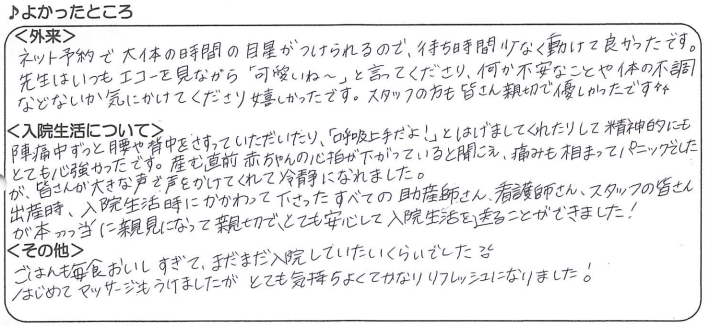 ♪よかったところ
<外来>
ネット予約で大体の時間の目星がつけられるので、待ち時間少なく動けて良かったです。
先生はいつもエコーを見ながら「可愛いね〜」と言ってくださり、何か不安なことや体の不調
などないか気にかけてくださり嬉しかったです。スタッフの方も皆さん親切で優しかったです
<入院生活について>
陣痛中ずっと腰や背中をさすっていただいたり、「呼吸上手だよ!」とはげましてくれたりして精神的にも
とても心強かったです。産む直前赤ちゃんの心拍が下がっていると聞こえ、痛みも相まってパニックでした
が、皆さんが大きな声で声をかけてくれて冷静になれました。
出産時、入院生活時にかかわって下さったすべての助産師さん、看護師さん、スタッフの皆さん
が本っっ当に親見になって親切で、とても安心して入院生活を送ることができました!
<その他>
ごはんも毎食おいしすぎて、まだまだ入院していたいくらいでした
はじめてマッサージもうけましたがとても気持ちよくてかなりリフレッシュになりました!